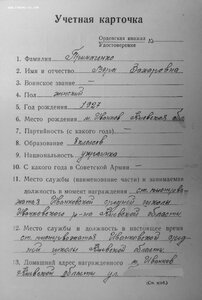 Учетная карточка
Орденская книжка
Удостоверение №
1. Фамилия
2. Имя и отчество Вера Захаровна
3. Воинское звание –
4. Пол женский
5. Год рождения 1927
6. Место рождения м. Иванков Киевской обл
7. Партийность (с какого года) –
8. Образование
9. Национальность украинка
10. С какого года в Советской Армии –
11. Место службы (наименование части) и занимаемая
должность в момент награждения ст. пионерво-
жатая Иванковской средней школы
Иванковского р-на Киевской области
12. Место службы и должность в настоящее время
ст. пионервожатая Иванковской сред-
ней школы Киевской области
13. Домашний адрес награжденного м. Иванков
Киевской области ул.
(См. н/об.)